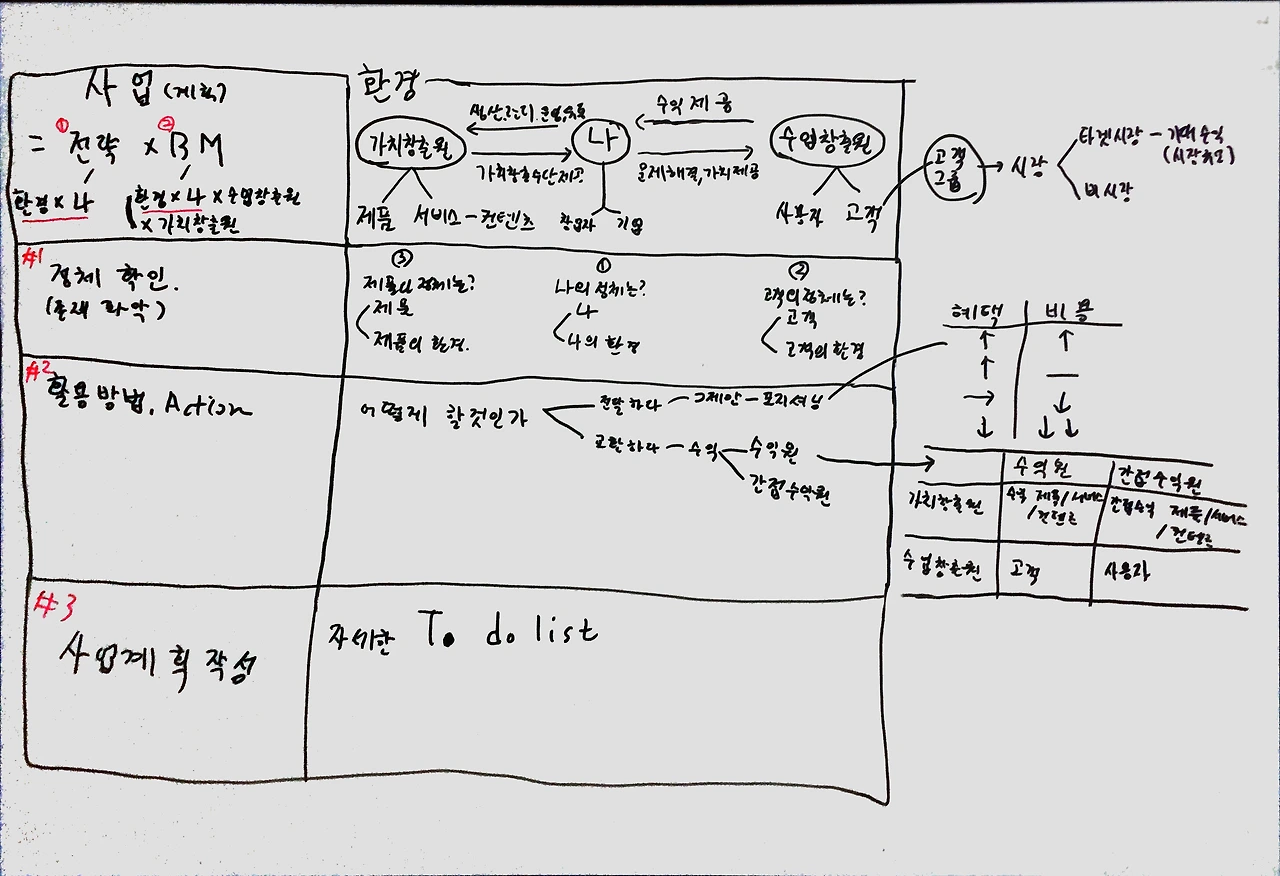 사업 (계획)
① ②
= 전략 × BM
환경 × 나
환경 × 나 × 수업창출원
× 가치창출원
환경
생산, 관리, 운영,
수익 제공
가치창출원
나
수업창출원
가치창출수단제공
문제해결, 가치제공
제품 서비스 - 컨텐츠
창업자 기업
사용자 고객
고객
그룹
시장
타겟시장 - 기대수익
(시장규모)
비시장
#1
정체 확인.
(존재 파악)
③
제품의 정체는?
제품
제품의 환경.
①
나의 정체는?
나
나의 환경
②
고객의 정체는?
고객
고객의 환경
#2
활용방법, Action
어떻게 할것인가
전달하다 - 제안 - 포지셔닝
교환하다 - 수익 - 수익원
간접수익원
혜택 비용
↑ ↑
↑ —
→ ↓
↓ ↓↓
수익원 간접수익원
가치창출원 수익 제품/서비스 간접수익 제품/서비스
/컨텐츠 /컨텐츠
수업창출원 고객 사용자
#3
사업계획작성
자세한 To do list